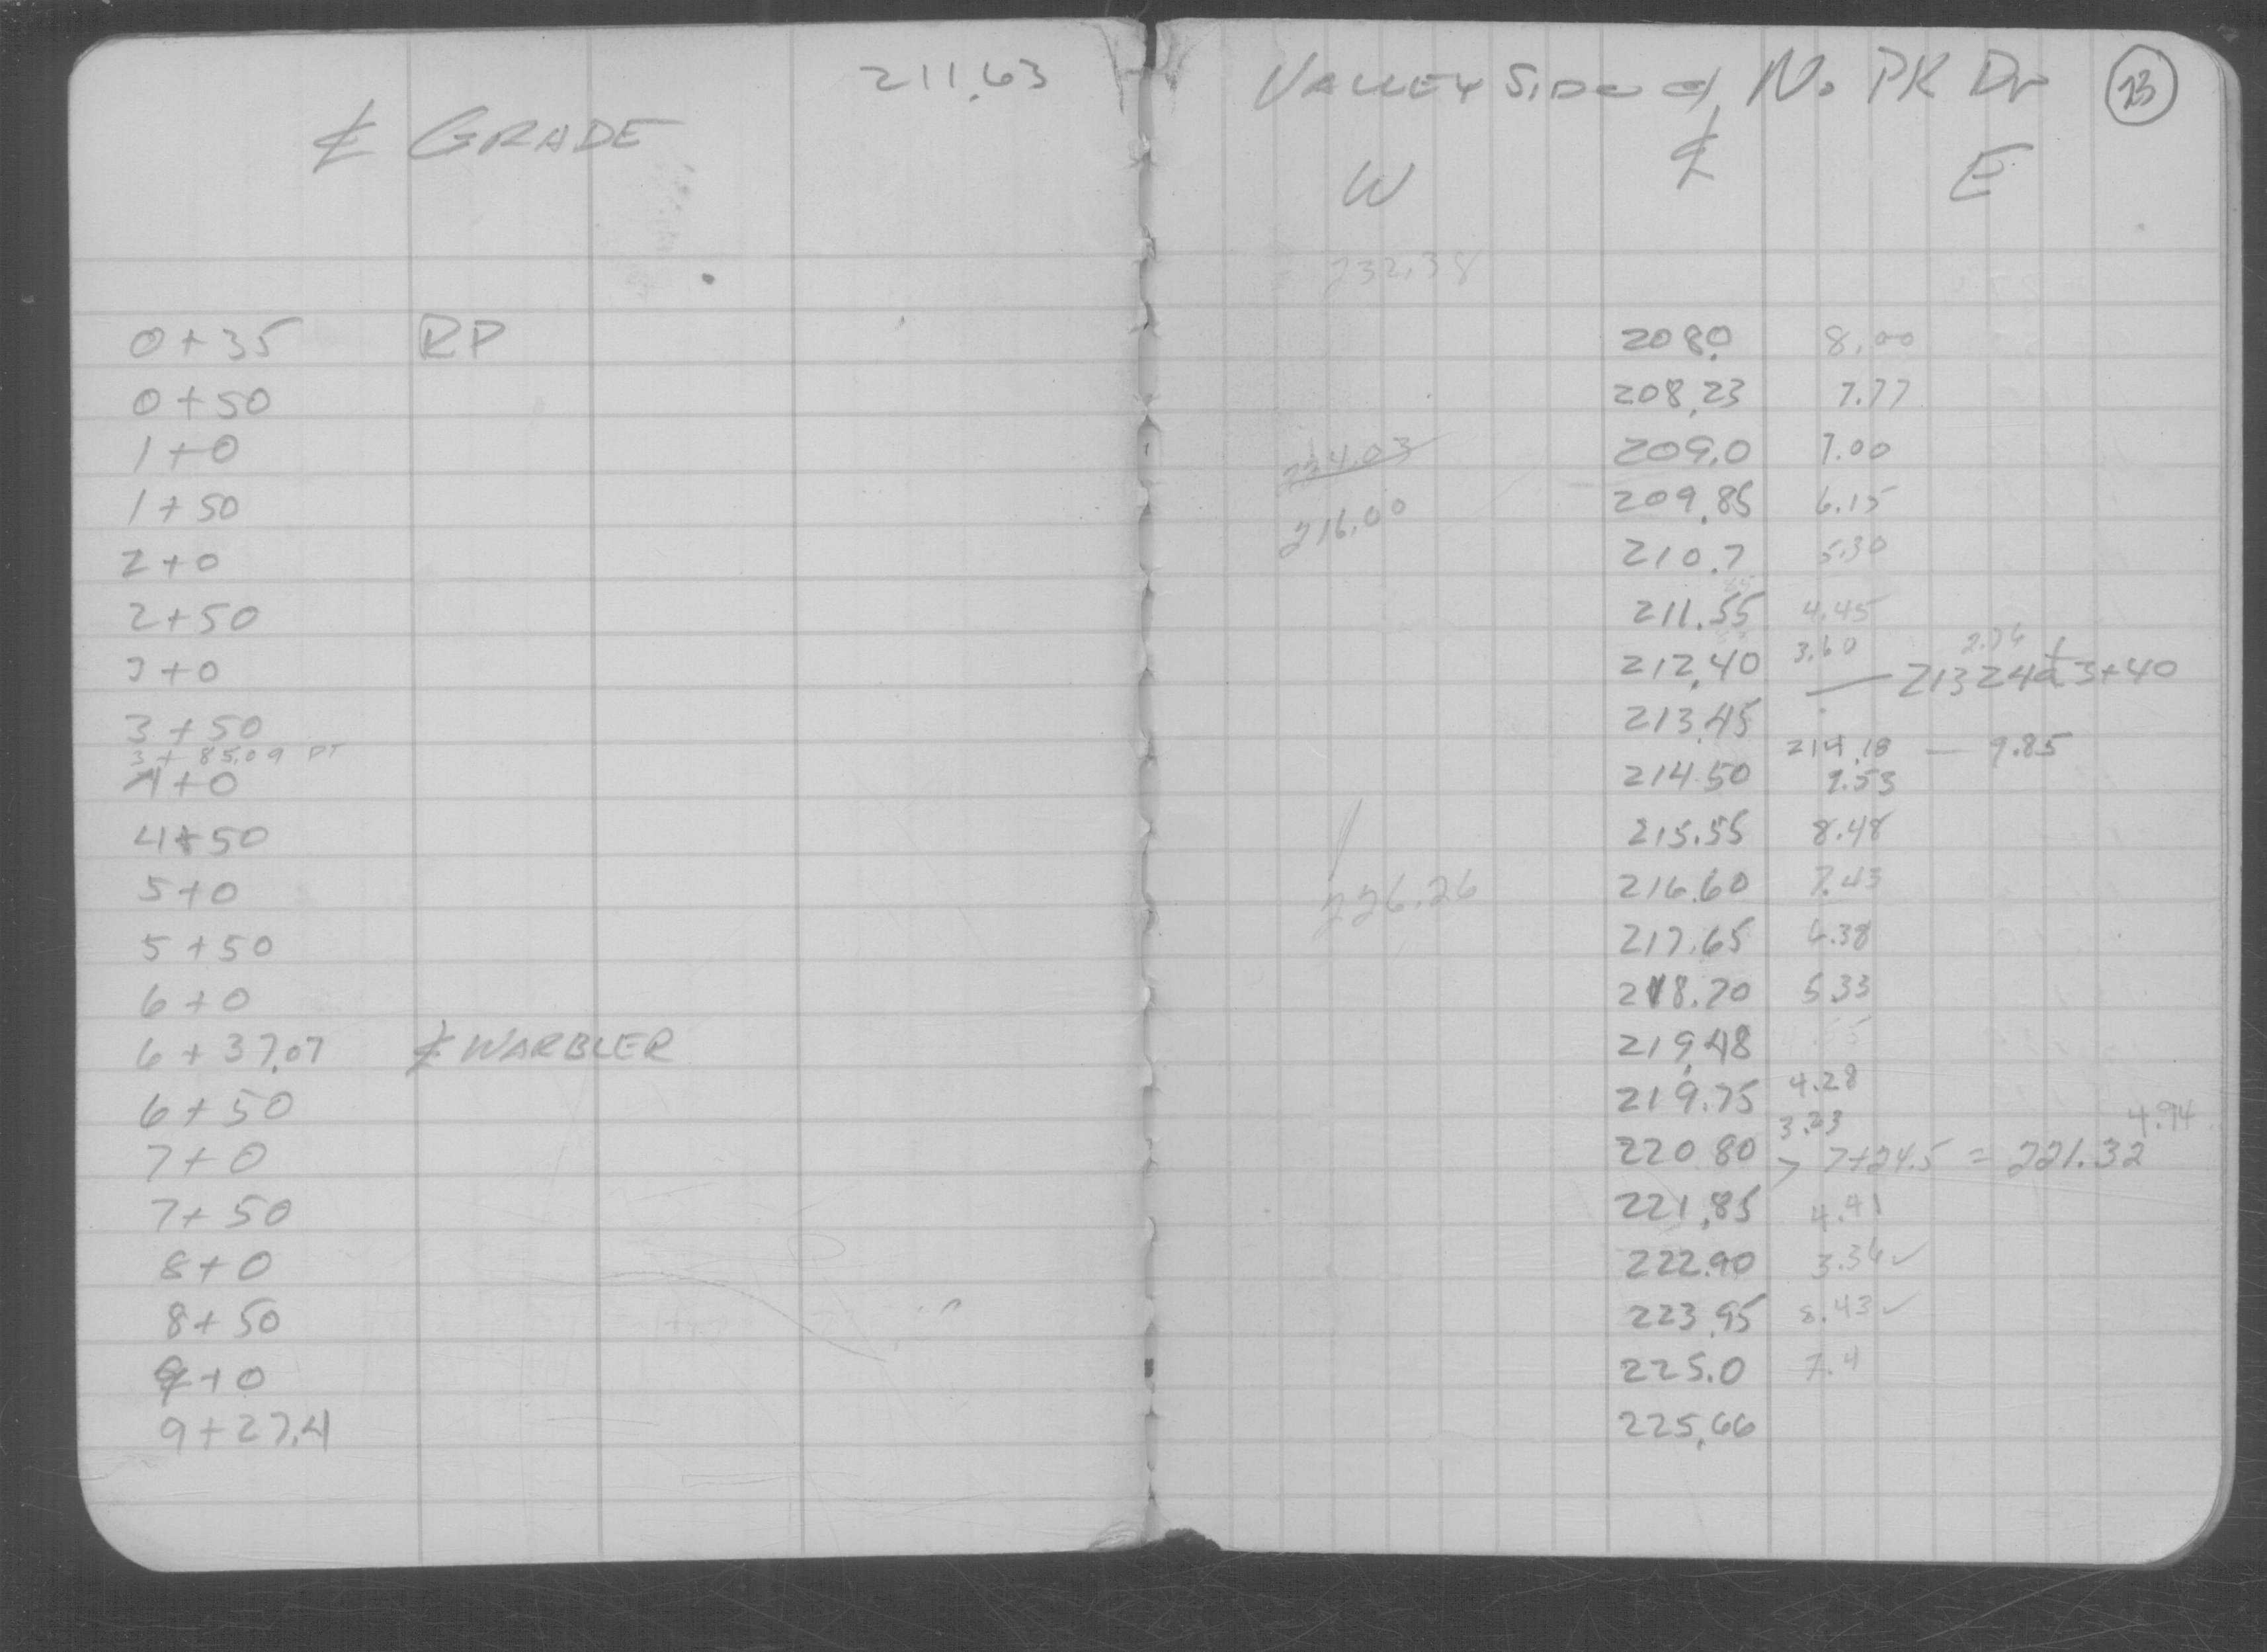 211.63
℄ GRADE
VALLEY SIDE of No. PK Dr 23
W ℄ E
232.38
0+35 RP 208.0 8.00
0+50 208.23 7.77
1+0 224.03 209.0 7.00
1+50 216.00 209.85 6.15
2+0 210.7 5.30
2+50 211.55 4.45
3+0 212.40 3.60 2.76
— 213.24 @ 3+40
3+50 213.45
3+85.09 PT 214.18 — 9.85
4+0 214.50 9.53
4+50 215.55 8.48
5+0 226.26 216.60 7.43
5+50 217.65 6.38
6+0 218.70 5.33
6+37.07 ℄ WARBLER 219.48
6+50 219.75 4.28
7+0 220.80 3.23 4.94
> 7+24.5 = 221.32
7+50 221.85 4.41
8+0 222.90 3.36 ✓
8+50 223.95 8.43 ✓
9+0 225.0 7.4
9+27.4 225.66